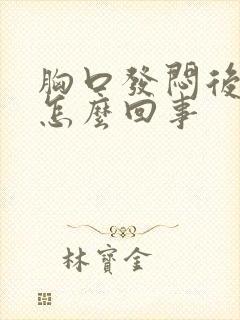 胸口發悶後
怎麼回事
林寶金